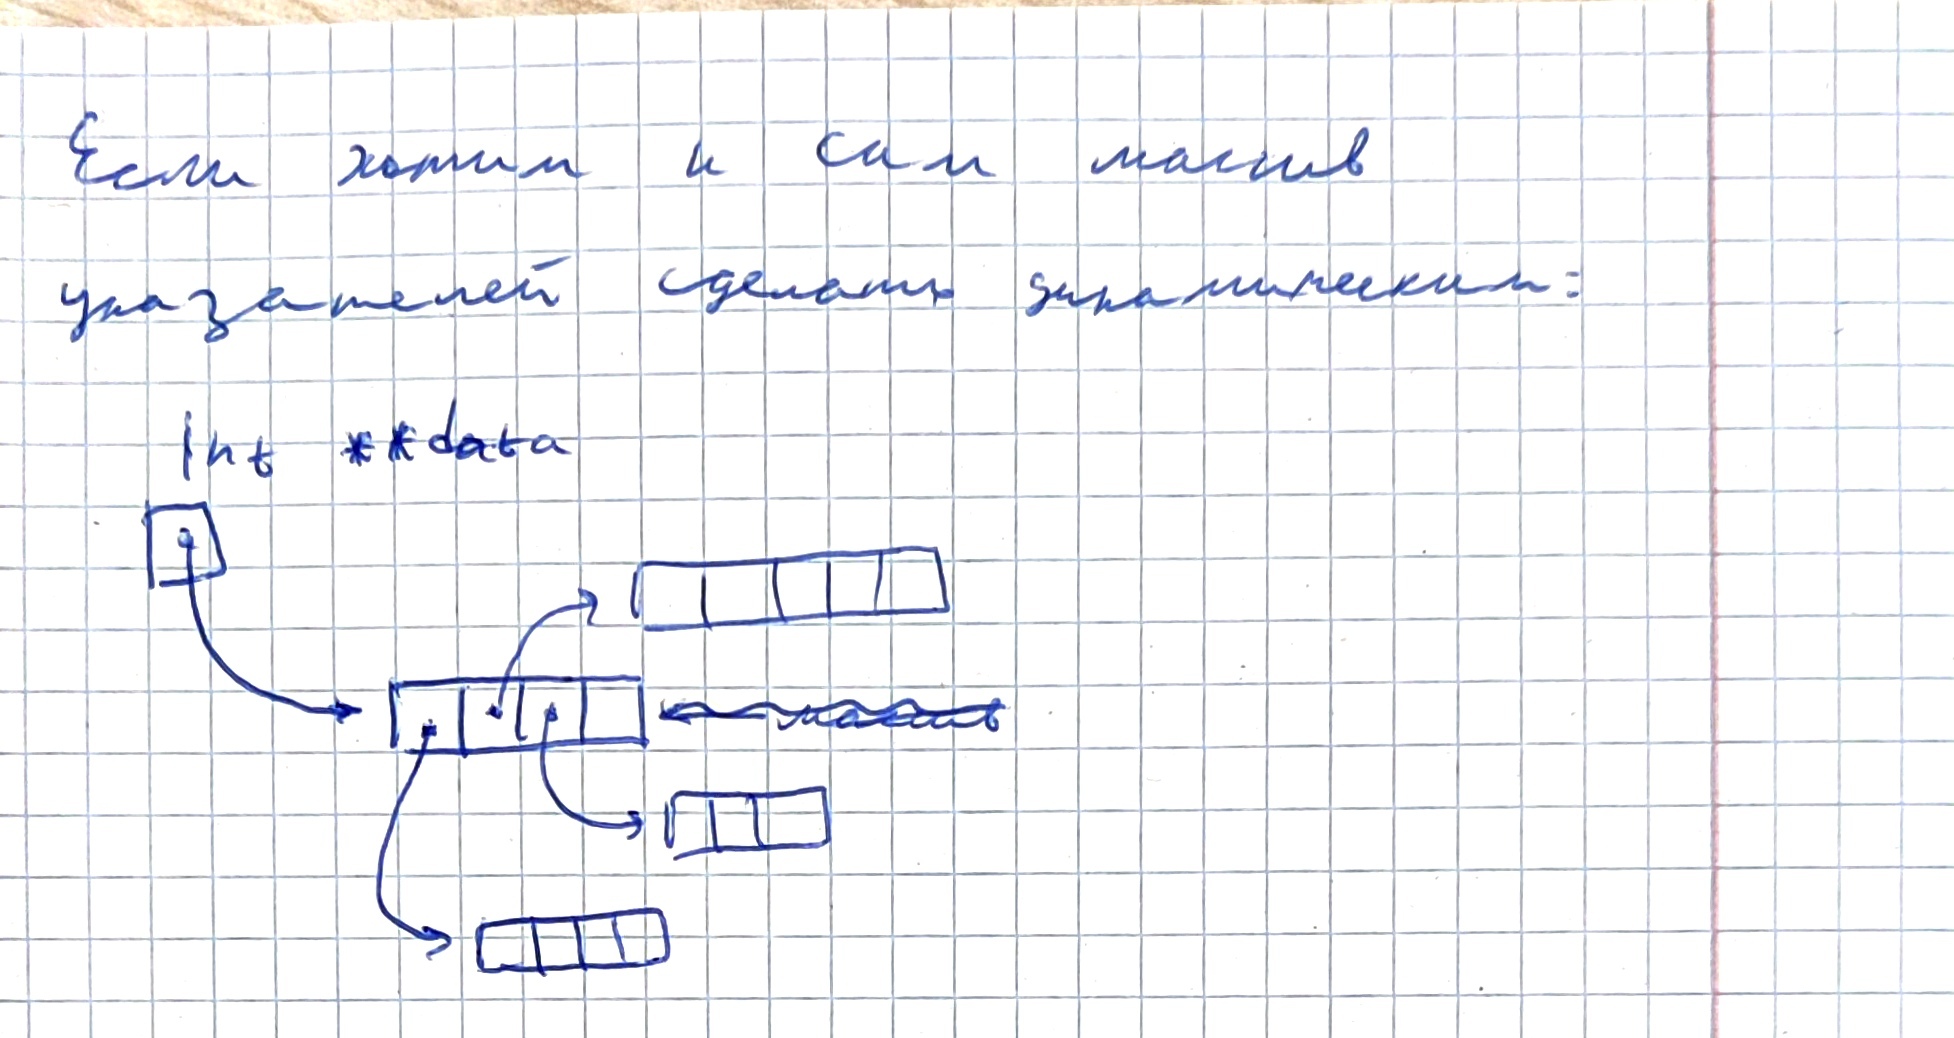 Если хотим и сам массив
указателей сделать динамическим:
int **data